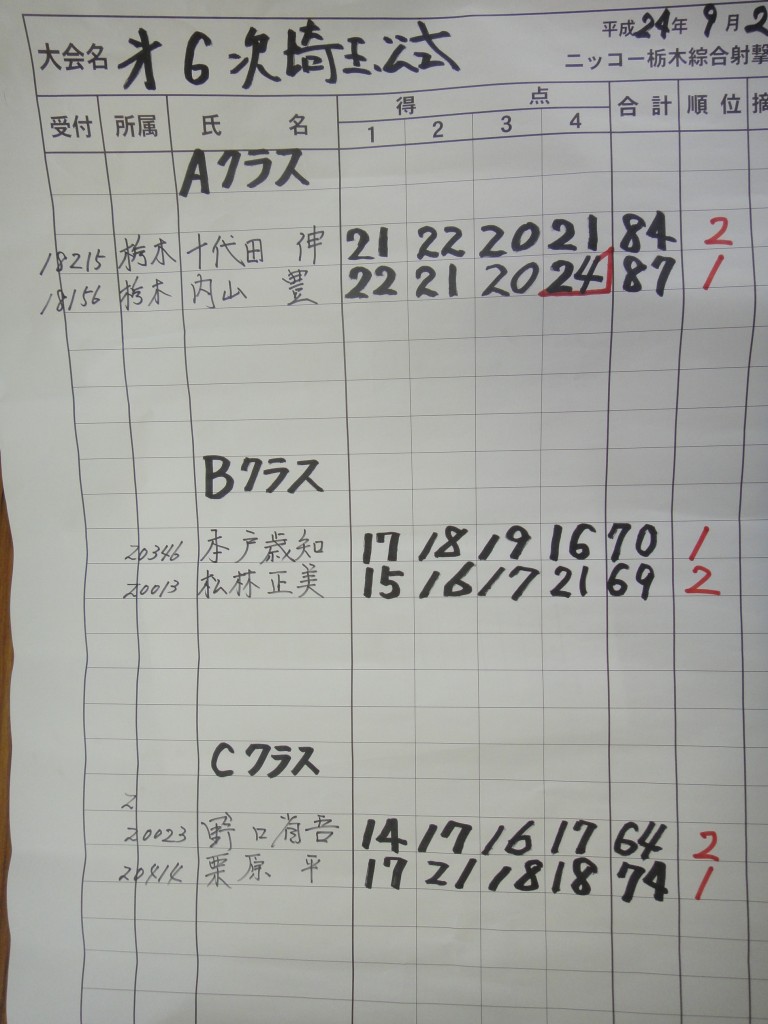 平成24年 9月2
大会名 才6次埼玉公式 ニッコー栃木綜合射撃
受付 所属 氏名 得点 合計 順位 摘
1 2 3 4
Aクラス
18215 栃木 十代田 伸 21 22 20 21 84 2
18156 栃木 内山 豊 22 21 20 24 87 1
Bクラス
20346 本戸歳知 17 18 19 16 70 1
20013 松林正美 15 16 17 21 69 2
Cクラス
2
20023 野口省吾 14 17 16 17 64 2
20414 栗原 平 17 21 18 18 74 1